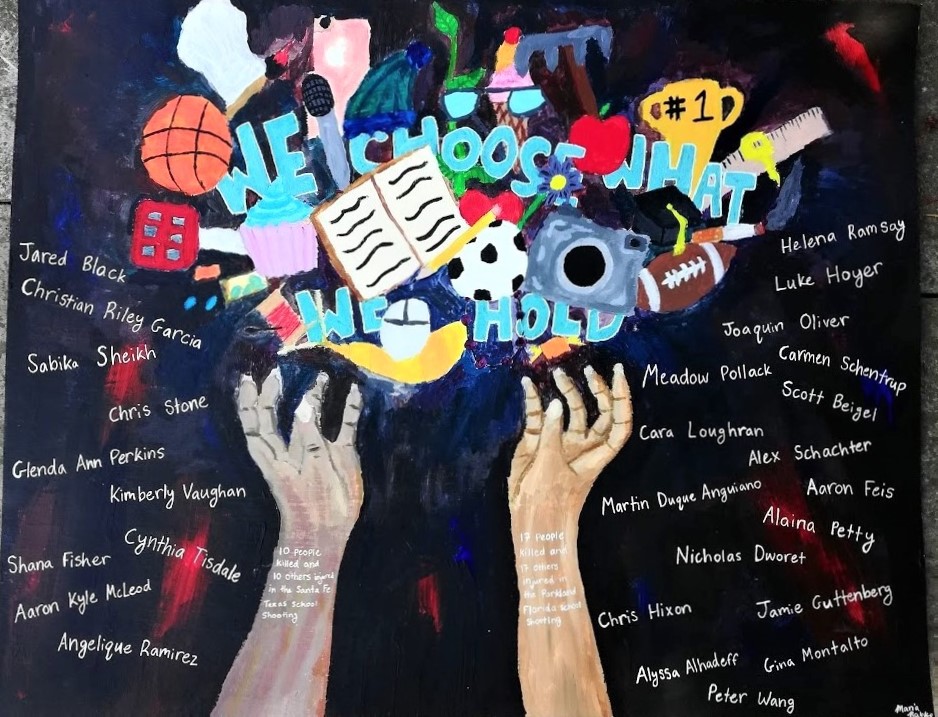 WE CHOOSE WHAT
#1
WE HOLD
Jared Black
Christian Riley Garcia
Sabika Sheikh
Chris Stone
Glenda Ann Perkins
Kimberly Vaughan
Cynthia Tisdale
Shana Fisher
Aaron Kyle McLeod
Angelique Ramirez
10 People
Killed and
10 others injured
in the Santa Fe
Texas School
Shooting
17 People
Killed and
17 others
injured in
the Parkland
Florida School
Shooting
Helena Ramsay
Luke Hoyer
Joaquin Oliver
Carmen Schentrup
Meadow Pollack
Scott Beigel
Cara Loughran
Alex Schachter
Martin Duque Anguiano
Aaron Feis
Alaina Petty
Nicholas Dworet
Chris Hixon
Jamie Guttenberg
Gina Montalto
Alyssa Alhadeff
Peter Wang